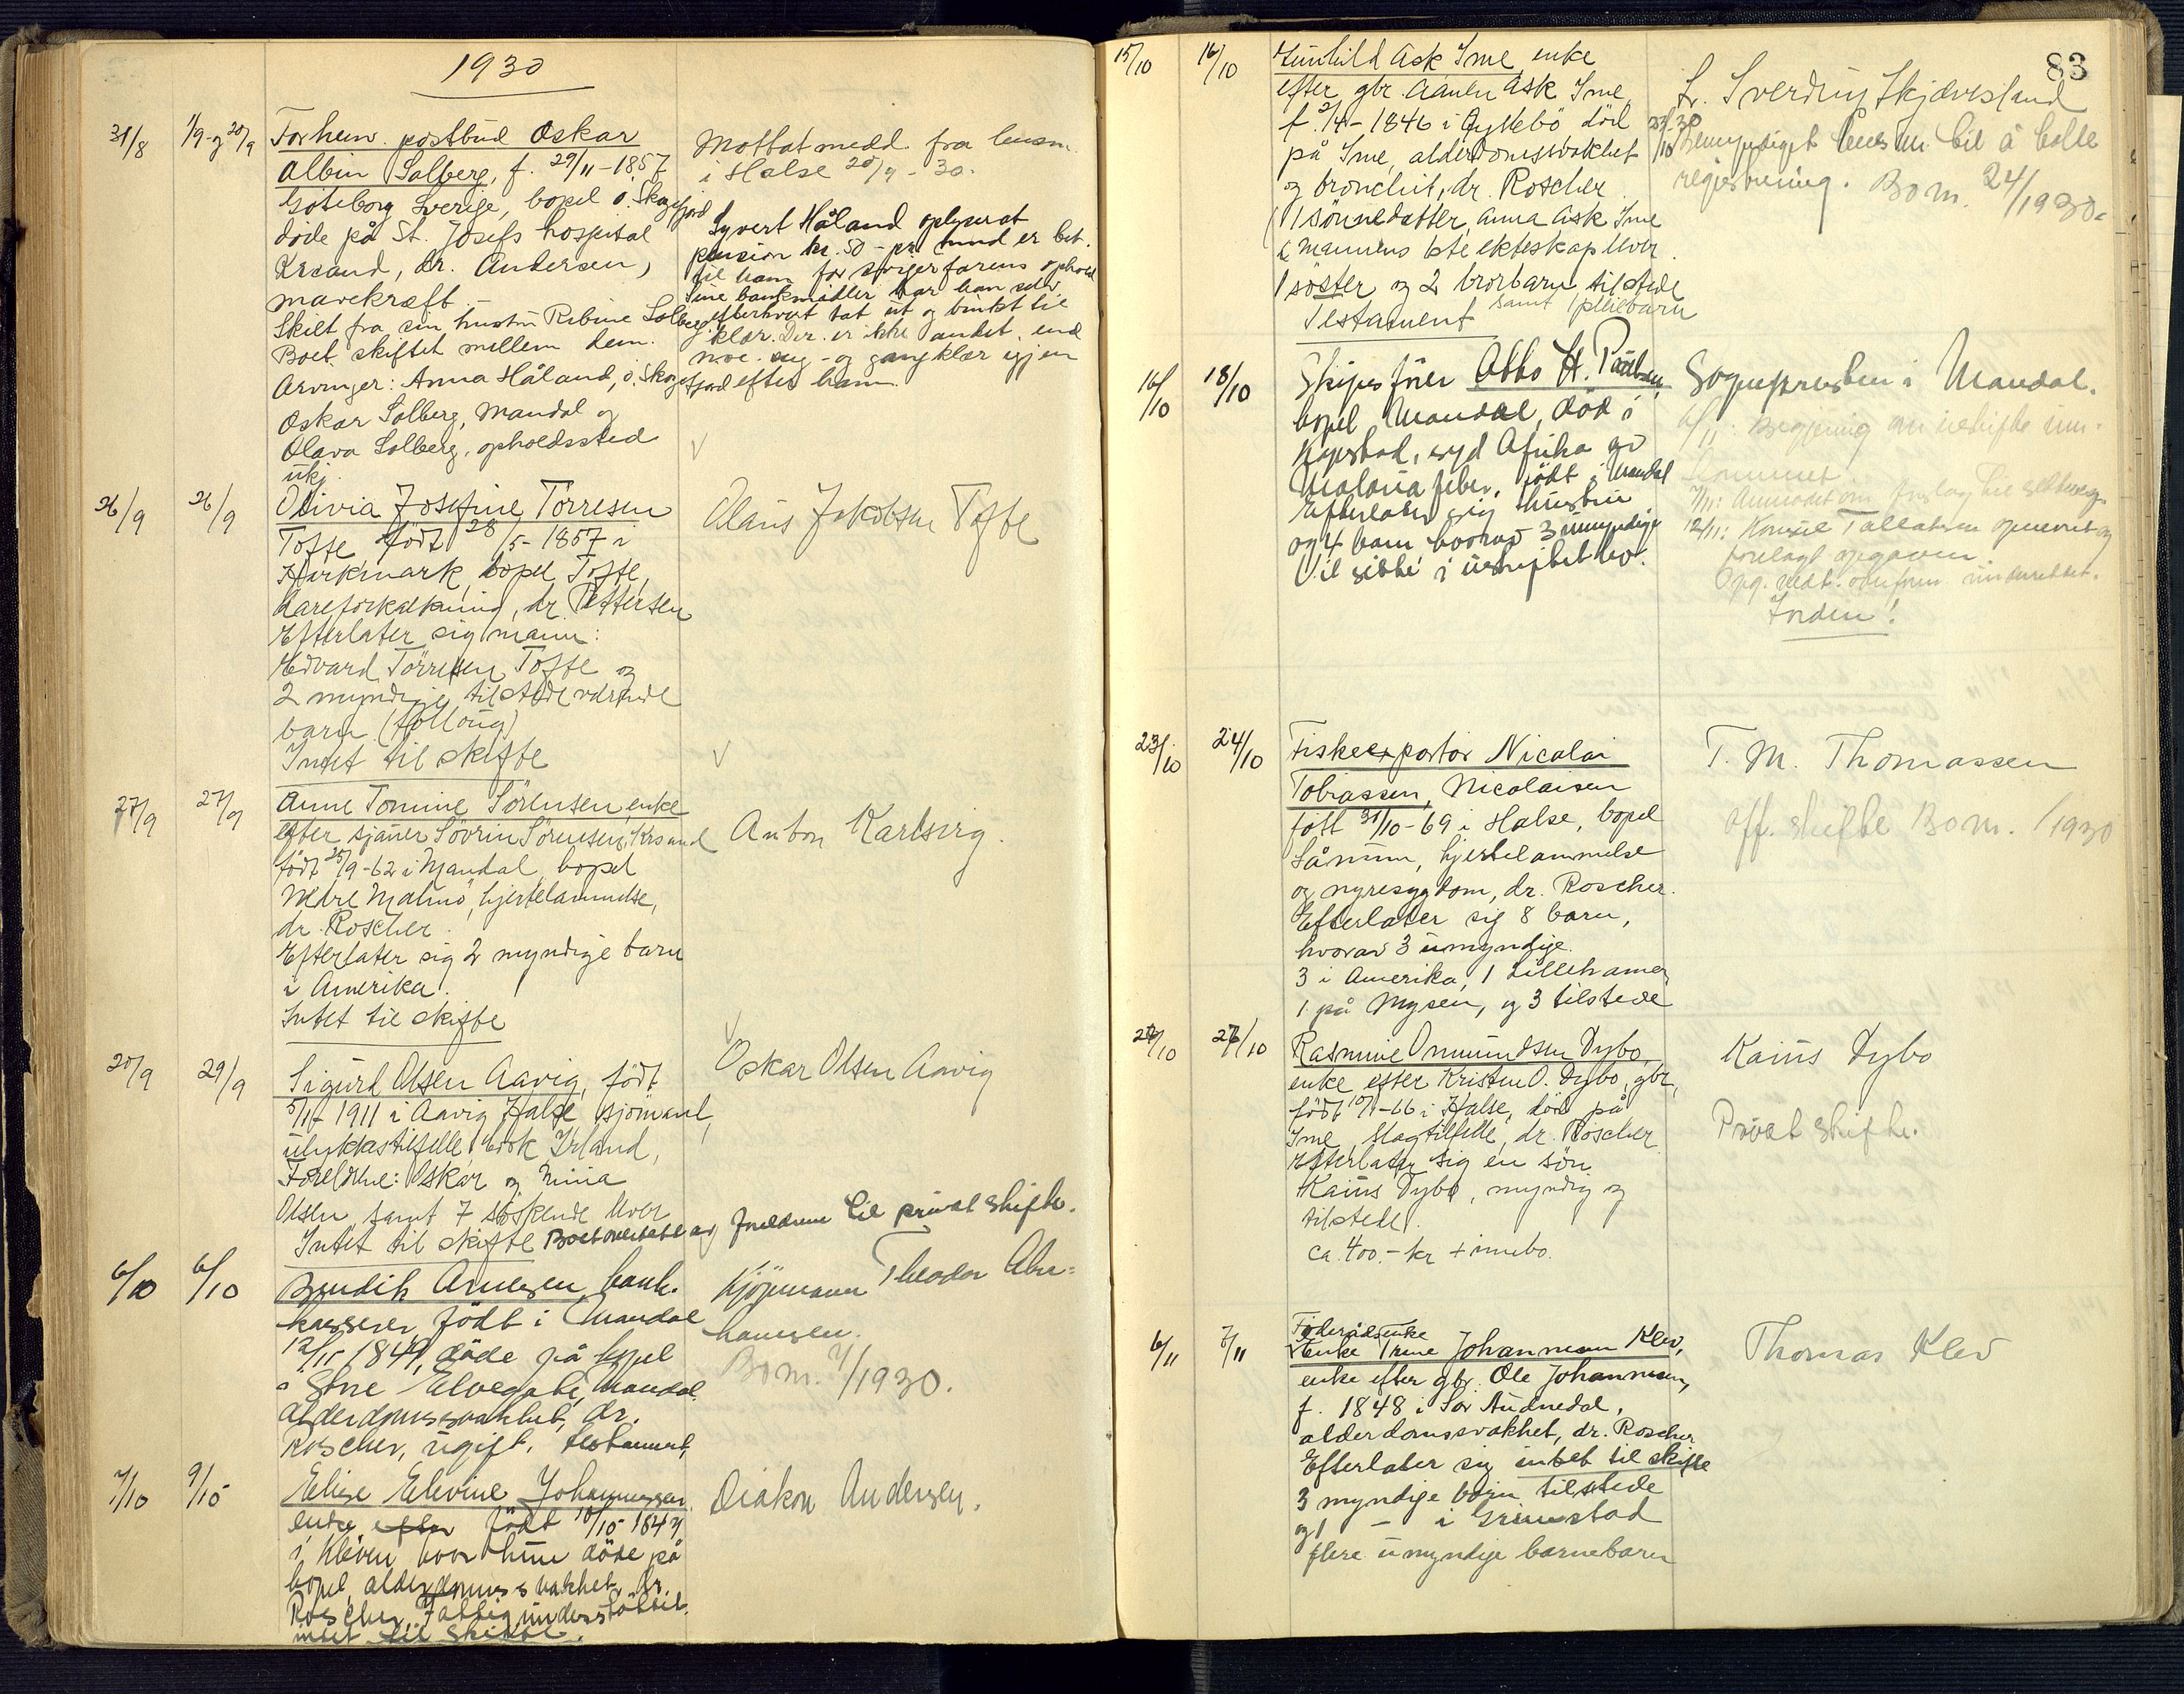 1930
31/8 1/9- og 20/9 Forhenv. postbud Oskar
Albin Solberg, f. 29/11-1857
Göteborg Sverige, bopel ö. Skogsfjord
döde på St. Josefs hospital
Krsand, dr. Andersen,
mavekræft.
Skilt fra sin hustru Rebine Solberg.
Boet skiftet mellem dem.
Arvinger: Anna Håland, ö. Skogsfjord
Oskar Solberg, Mandal og
Olava Solberg, opholdssted
ukj.
Mottat medd. fra lensm.
i Halse 20/9-30.
Syvert Håland oplyser at
pension kr. 50 - pr. mnd er bet.
til ham for svigerfarens ophold
Sine bankmidler har han selv
efterhvert tat ut og brukt til
klær. Der er ikke andet end
noe seng- og gangklær igjen
efter ham.
26/9 26/9 Olivia Josefine Törresen
Tofte født 28/5-1857 i
Harkmark, bopel Tofte,
åreforkalkning, dr. Pettersen
Efterlater sig mann:
Edvard Törresen Tofte og
2 myndige tilstedeværende
barn
Intet til skifte
Olaus Jakobsen Tofte
27/9 27/9 Anne Tomine Sörensen, enke
efter sjauer Sövrin Sörensen, Krsand
född 25/9-62 i Mandal, bopel
Nedre Malmö, hjertelammelse,
dr. Roscher.
Efterlater sig 2 myndige barn
i Amerika.
Intet til skifte
Anton Karlsvig.
20/9 29/9 Sigurd Olsen Aavig, født
5/11-1911 i Aavig Halse sjömand,
ulykkestilfelle, Irland,
Foreldrene: Oskar og Mina
Olsen samt 7 söskende
Intet til skifte Boet overlatt av foreldrene til privat skifte.
Oskar Olsen Aavig
6/10 6/10 Bendik Arnesen bank-
kasserer, född i Mandal
1849, döde på bopel
i Store Elvegate, Mandal
alderdomssvakhet, dr.
Roscher, ugift, testament,
Kjöpmann Theodor Abra-
hamsen.
Bom. 1930.
7/10 9/10 Elise Elevine Johannessen
enke efter født 10/10 1849
i Kleven hvor hun döde på
bopel, alderdomssvakhet, dr.
Roscher. Fattigunderstöttet.
intet til skifte.
Diakon Andersen.
83
15/10 16/10 Gunhild Ask Ime, enke
efter gbr. Aanen Ask Ime,
f. 2/4-1846 i Öyslebö död
på Ime, alderdomssvakhet
og bronchit, dr. Roscher
1 sönnedatter, Anna Ask Ime
i mannens 1ste ekteskap
1 söster og 2 brorbarn tilstede
samt 1 pleiebarn
Testament
L. Sverdrup Skjævesland
23/10 30 Bemyndiget lensm. til å holde
registrering. Bom. 24/1930.
16/10 18/10 Skipsförer Abbo H. Paulsen,
bopel Mandal, död i
Kapstad, syd Afrika av
Malaria feber, född i Mandal
Efterlater sig hustru
og 4 barn hvorav 3 umyndige
Vil sitte i uskiftet bo.
Sognepresten i Mandal.
6/11: Begjæring om uskifte inn-
kommet
7/11: Anmodet om forslag til
12/11: Konsul Tallaksen opnevnt og
forelagt opgaven
Orden!
23/10 24/10 Fiskeexportör Nicolai
Tobiassen, Nicolaisen
född 31/10-69 i Halse, bopel
Sånum, hjertelammelse
og nyresygdom, dr. Roscher.
Efterlater sig 8 barn,
hvorav 3 umyndige.
3 i Amerika, 1 Lillehamer
1 på Mysen, og 3 tilstede
T. M. Thomassen
Off. skifte Bom. /1930
24/10 27/10 Rasmine Ommundsen Dybo,
enke efter Kristen O. Dybo, gbr,
född 10/1-66 i Halse, död på
Ime, slagtilfelle, dr. Roscher
Efterlater sig en sön
Kaius Dybo, myndig og
tilstede.
ca. 400.- kr + innbo.
Kaius Dybo
Privat skifte.
6/11 7/11 Föderådsenke
Enke Trine Johannesen Klev,
enke efter gbr. Ole Johannesen,
f. 1848 i Sör Audnedal,
alderdomssvakhet, dr. Roscher
Efterlater sig intet til skifte
3 myndige barn tilstede
og 1 - i Grimstad
flere umyndige barnebarn
Thomas Klev